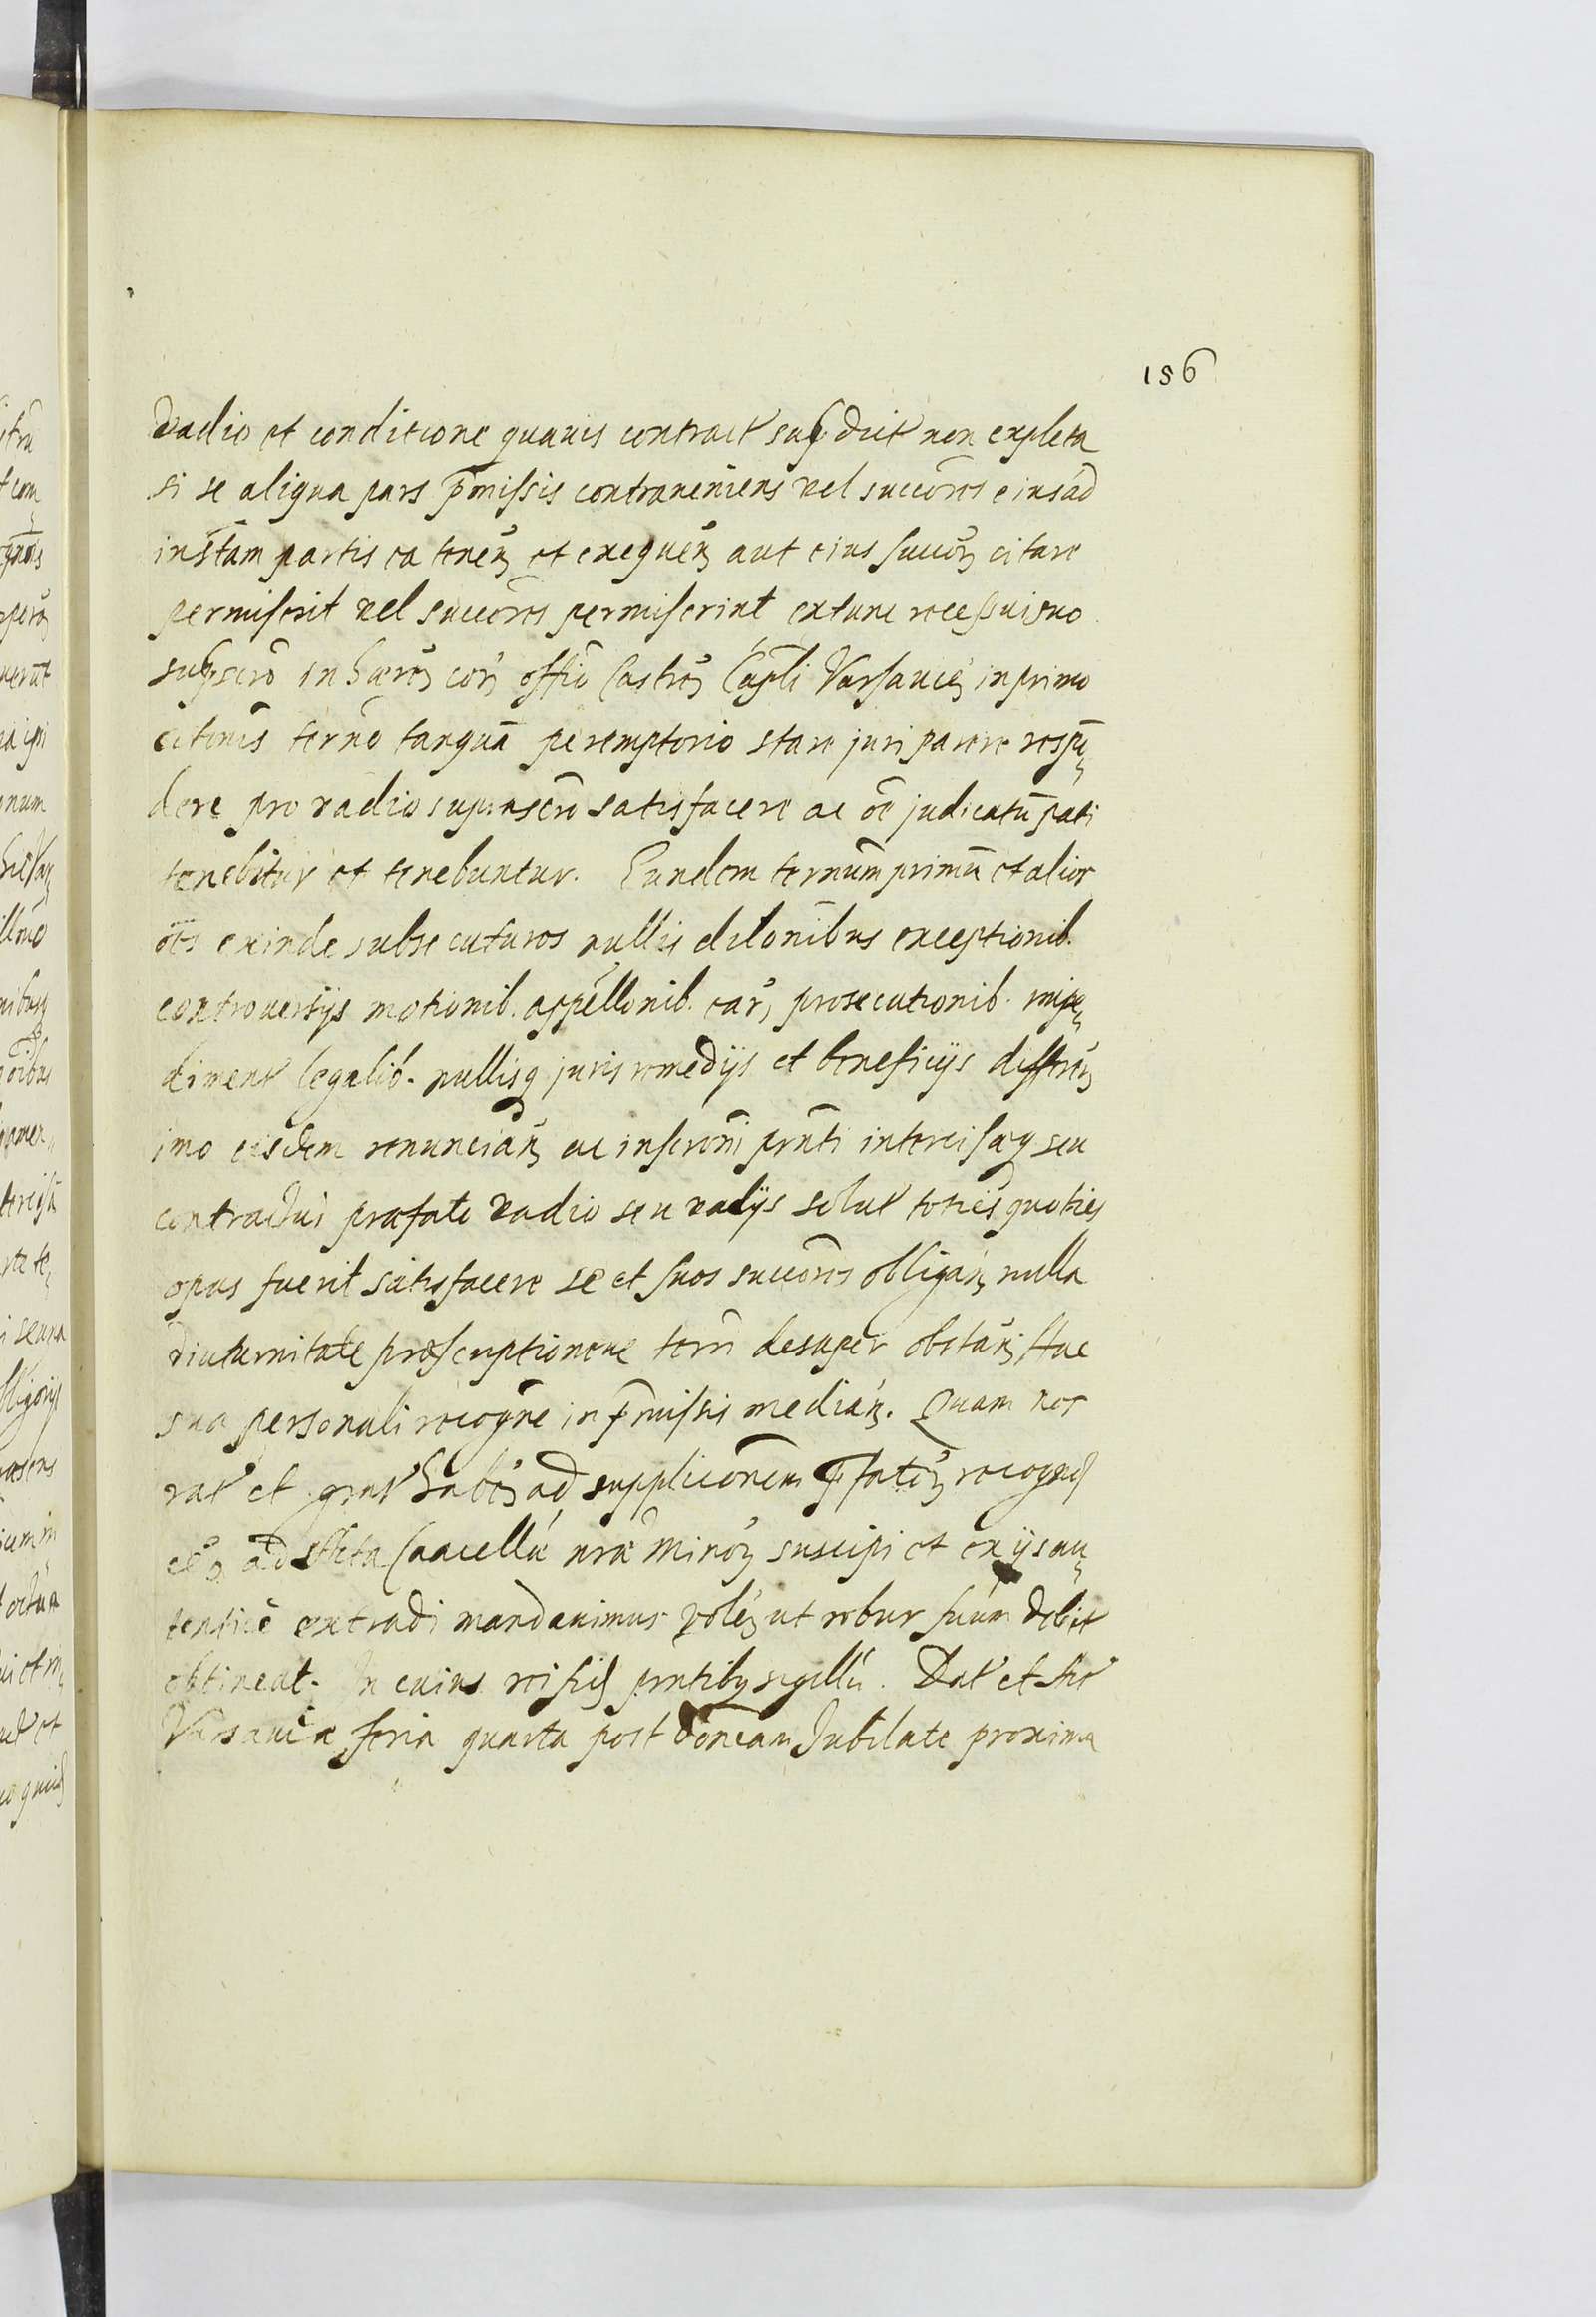 156
vadio et conditione quavis contract supdict non expleta
si se aliqua pars pmissis contraveniens vel succores eius ad
instam partis ea tenen et exequen aut eius succor citare
permiserit vel succores permiserint extunc recessui suo
supscro inhæren cor offio Castren Capli Varsavien in primo
citonis termo tanquā peremptorio stare juri parere respō
dere pro vadio suprascro satisfacere ac oē judicatū pati
tenebitur et tenebuntur. Eundem termum primū et alios
oēs exinde subsecuturos nullis dilonibus exceptionib.
controversijs motionib. appellonib. car, prosecutionib. impe
diment legalib. nullisq juris remedijs et beneficijs differen
imo eisdem renuncian ac inscroni prnti intercisæq seu
contractui præfato vadio seu vadijs solut toties quoties
opus fuerit satisfacere se et suos succores obligan nulla
diuturnitate præscriptioneve termi desuper obstan Hac
sua personali recogne in pmissis median. Quam nos
rat et grat haben ad supplicōnem pfator recogn
ad Acta Cancellæ nræ Minor suscipi et ex ijs au
tentice extradi mandavimus volen ut robur suum debit
obtineat. In cuius rei fid prntibg sigillū. Dat et Act
Varsaviæ feria quarta post donicam Jubilate proxima